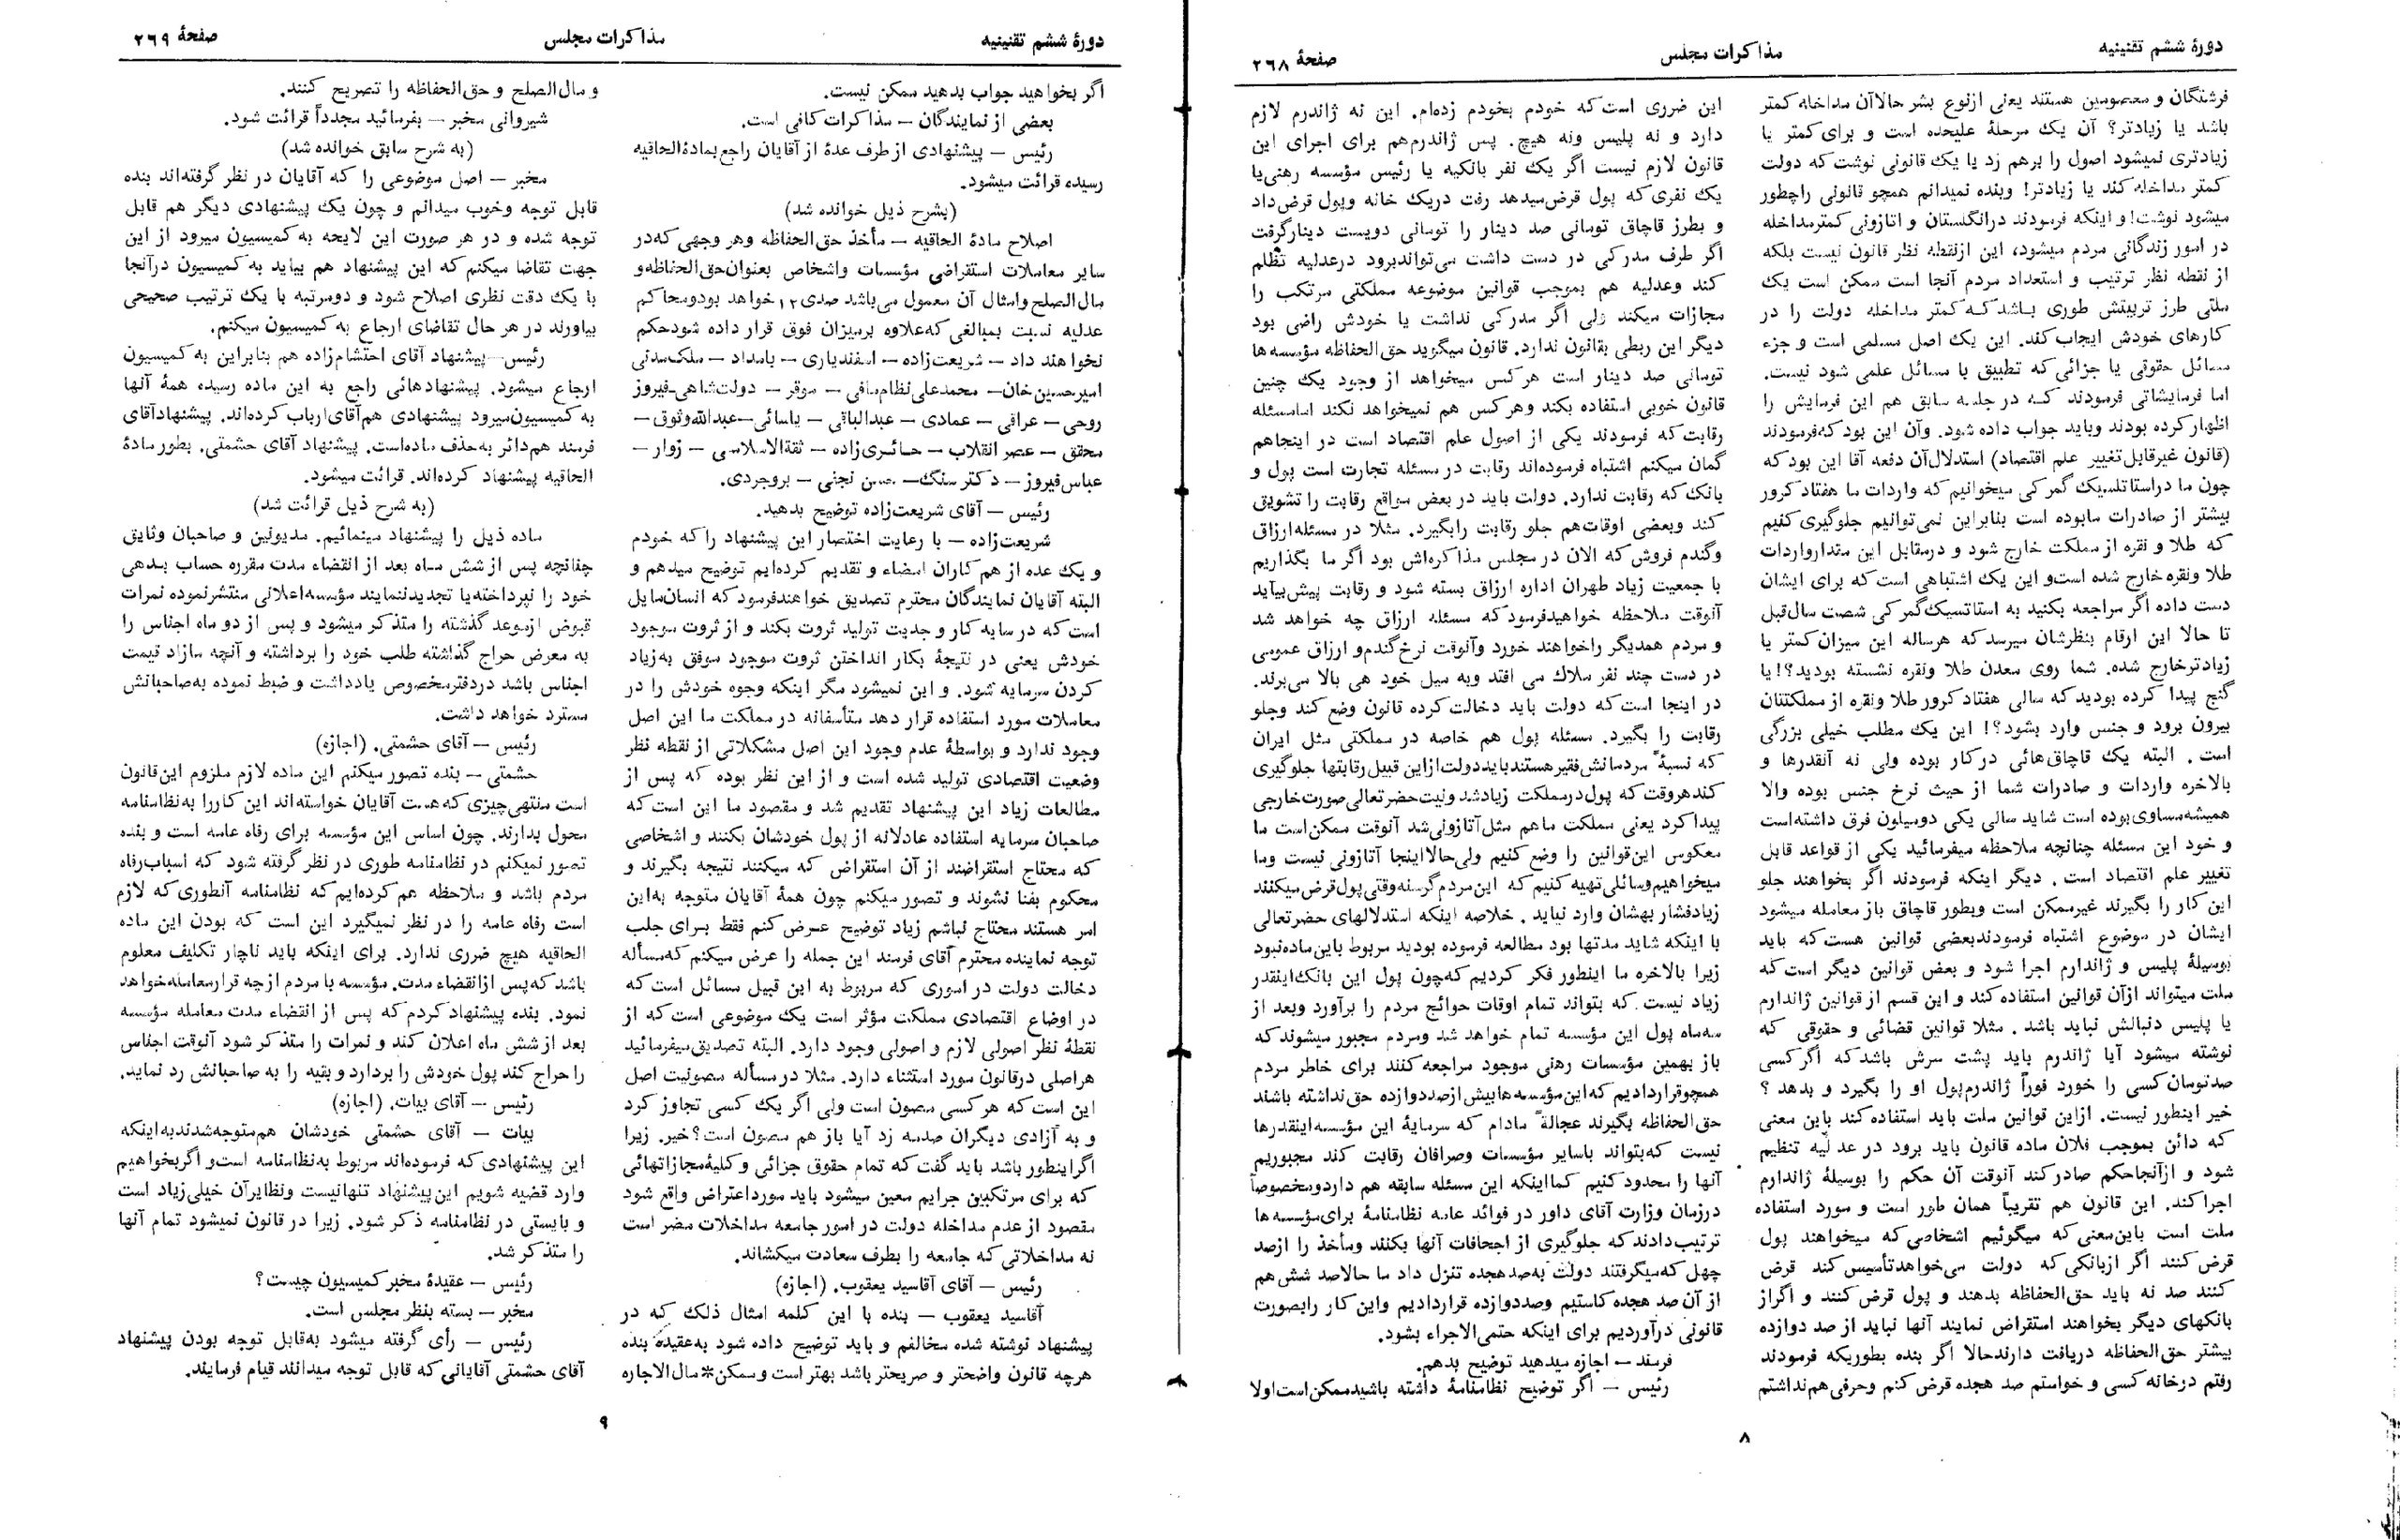 دورهٔ ششم تقنینیه
مذاکرات مجلس
صفحهٔ ۲۶۸
فرشتگان و معصومین هستند یعنی ازنوع بشر حالاآن مداخله کمتر
باشد یا زیادتر؟ آن یک مرحلهٔ علیحده است و برای کمتر یا
زیادتری نمیشود اصول را برهم زد یا یک قانونی نوشت که دولت
کمتر مداخله کند یا زیادتر! وبنده نمیدانم همچو قانونی راچطور
میشود نوشت! و اینکه فرمودند درانگلستان و اتازونی کمترمداخله
در امور زندگانی مردم میشود، این ازنقطه نظر قانون نیست بلکه
از نقطه نظر ترتیب و استعداد مردم آنجا است ممکن است یک
ملتی طرز تربیتش طوری باشد که کمتر مداخله دولت را در
کارهای خودش ایجاب کند. این یک اصل مسلمی است و جزء
مسائل حقوقی یا جزائی که تطبیق با مسائل علمی شود نیست.
اما فرمایشاتی فرمودند که در جلسه سابق هم این فرمایش را
اظهار کرده بودند وباید جواب داده شود. وآن این بود که فرمودند
(قانون غیرقابل تغییر علم اقتصاد) استدلال آن دفعه آقا این بود که
چون ما دراستاتسیک گمرکی میخوانیم که واردات ما هفتاد کرور
بیشتر از صادرات مابوده است بنابراین نمی‌توانیم جلوگیری کنیم
که طلا و نقره از مملکت خارج شود و درمقابل این متدارواردات
طلا ونقره خارج شده است و این یک اشتباهی است که برای ایشان
دست داده اگر مراجعه بکنید به استاتسیک گمرکی شصت سال قبل
تا حالا این ارقام بنظرشان میرسد که هرساله این میزان کمتر یا
زیادتر خارج شده. شما روی معدن طلا ونقره نشسته بودید؟! یا
گنج پیدا کرده بودید که سالی هفتاد کرور طلا ونقره از مملکتتان
بیرون برود و جنس وارد بشود؟! این یک مطلب خیلی بزرگی
است . البته یک قاچاق‌هائی درکار بوده ولی نه آنقدرها و
بالاخره واردات و صادرات شما از حیث نرخ جنس بوده والا
همیشه مساوی بوده است شاید سالی یکی دومیلون فرق داشته است
و خود این مسئله چنانچه ملاحظه میفرمائید یکی از قواعد قابل
تغییر علم اقتصاد است . دیگر اینکه فرمودند اگر بخواهند جلو
این کار را بگیرند غیرممکن است وبطور قاچاق باز معامله میشود
ایشان در موضوع اشتباه فرمودند بعضی قوانین هست که باید
بوسیلهٔ پلیس و ژاندارم اجرا شود و بعض قوانین دیگر است که
ملت میتواند ازآن قوانین استفاده کند و این قسم از قوانین ژاندارم
یا پلیس دنبالش نباید باشد . مثلا قوانین قضائی و حقوقی که
نوشته میشود آیا ژاندرم باید پشت سرش باشد که اگر کسی
صدتومان کسی را خورد فوراً ژاندرم پول او را بگیرد و بدهد ؟
خیر اینطور نیست. ازاین قوانین ملت باید استفاده کند باین معنی
که دائن بموجب فلان ماده قانون باید برود در عدلیه تنظیم
شود و ازآنجا حکم صادر کند آنوقت آن حکم را بوسیلهٔ ژاندارم
اجرا کند. این قانون هم تقریباً همان طور است و مورد استفاده
ملت است باین معنی که میگوئیم اشخاصی که میخواهند پول
قرض کنند اگر ازبانکی که دولت می‌خواهد تأسیس کند قرض
کنند صد نه باید حق‌الحفاظه بدهند و پول قرض کنند و اگراز
بانکهای دیگر بخواهند استقراض نمایند آنها نباید از صد دوازده
بیشتر حق‌الحفاظه دریافت دارند حالا اگر بنده بطوریکه فرمودند
رفتم درخانه کسی و خواستم صد هجده قرض کنم وحرفی هم نداشتم
این ضرری است که خودم بخودم زده‌ام. این نه ژاندرم لازم
دارد و نه پلیس ونه هیچ. پس ژاندرم هم برای اجرای این
قانون لازم نیست اگر یک نفر بانکیه یا رئیس مؤسسه رهنی یا
یک نفری که پول قرض میدهد رفت دریک خانه وپول قرض داد
و بطرز قاچاق تومانی صد دینار را تومانی دویست دینار گرفت
اگر طرف مدرکی در دست داشت می‌تواند برود درعدلیه تظلم
کند وعدلیه هم بموجب قوانین موضوعه مملکتی مرتکب را
مجازات میکند ولی اگر مدرکی نداشت یا خودش راضی بود
دیگر این ربطی بقانون ندارد. قانون میگوید حق‌الحفاظه مؤسسه‌ها
تومانی صد دینار است هر کس میخواهد از وجود یک چنین
قانون خوبی استفاده بکند وهر کس هم نمیخواهد نکند اما مسئله
رقابت که فرمودند یکی از اصول علم اقتصاد است در اینجا هم
گمان میکنم اشتباه فرموده‌اند رقابت در مسئله تجارت است پول و
بانک که رقابت ندارد. دولت باید در بعض مواقع رقابت را تشویق
کند وبعضی اوقات هم جلو رقابت رابگیرد. مثلا در مسئله ارزاق
وگندم فروش که الان در مجلس مذاکره‌اش بود اگر ما بگذاریم
با جمعیت زیاد طهران اداره ارزاق بسته شود و رقابت پیش بیآید
آنوقت ملاحظه خواهید فرمود که مسئله ارزاق چه خواهد شد
و مردم همدیگر راخواهند خورد وآنوقت نرخ گندم و ارزاق عمومی
در دست چند نفر ملاک می افتد وبه میل خود هی بالا می‌برند.
در اینجا است که دولت باید دخالت کرده قانون وضع کند وجلو
رقابت را بگیرد. مسئله پول هم خاصه در مملکتی مثل ایران
که نسبهٔ مردمانش فقیر هستند باید دولت از این قبیل رقابتها جلوگیری
کند هروقت که پول درمملکت زیاد شد ونیت حضرتعالی صورت خارجی
پیدا کرد یعنی مملکت ماهم مثل آتازونی شد آنوقت ممکن است ما
معکوس این قوانین را وضع کنیم ولی حالا اینجا آتازونی نیست وما
میخواهیم وسائلی تهیه کنیم که این مردم گرسنه وقتی پول قرض میکنند
زیاد فشار بهشان وارد نیاید . خلاصه اینکه استدلالهای حضرتعالی
با اینکه شاید مدتها بود مطالعه فرموده بودید مربوط باین ماده نبود
زیرا بالاخره ما اینطور فکر کردیم که چون پول این بانک اینقدر
زیاد نیست که بتواند تمام اوقات حوائج مردم را برآورد وبعد از
سه ماه پول این مؤسسه تمام خواهد شد ومردم مجبور میشوند که
باز بهمین مؤسسات رهنی موجود مراجعه کنند برای خاطر مردم
همچو قرار دادیم که این مؤسسه‌ها بیش از صد دوازده حق نداشته باشند
حق‌الحفاظه بگیرند عجالهٔ مادام که سرمایهٔ این مؤسسه اینقدرها
نیست که بتواند باسایر مؤسسات وصرافان رقابت کند مجبوریم
آنها را محدود کنیم کما اینکه این مسئله سابقه هم دارد ومخصوصاً
درزمان وزارت آقای داور در فوائد عامه نظامنامهٔ برای مؤسسه‌ها
ترتیب دادند که جلوگیری از اجحافات آنها بکنند ومأخذ را ازصد
چهل که میگرفتند دولت به صد هجده تنزل داد ما حالا صد شش هم
از آن صد هجده کاستیم وصد دوازده قرار دادیم و این کار رابصورت
قانونی درآوردیم برای اینکه حتمی‌الاجراء بشود.
فرمند — اجازه میدهید توضیح بدهم.
رئیس — اگر توضیح نظامنامهٔ داشته باشید ممکن است اولا
۸
دورهٔ ششم تقنینیه
مذاکرات مجلس
صفحهٔ ۲۶۹
اگر بخواهید جواب بدهید ممکن نیست.
بعضی از نمایندگان — مذاکرات کافی است.
رئیس — پیشنهادی از طرف عدهٔ از آقایان راجع بمادهٔ الحاقیه
رسیده قرائت میشود.
(بشرح ذیل خوانده شد)
اصلاح مادهٔ الحاقیه — مأخذ حق‌الحفاظه وهر وجهی که در
سایر معاملات استقراضی مؤسسات واشخاص بعنوان حق‌الحفاظه و
مال‌الصلح وامثال آن معمول می‌باشد صدی ۱۲ خواهد بود ومحاکم
عدلیه نسبت بمبالغی که علاوه برمیزان فوق قرار داده شود حکم
نخواهند داد — شریعت‌زاده — اسفندیاری — بامداد — ملک‌مدنی
امیرحسین‌خان— محمدعلی نظام‌مافی — موقر — دولتشاهی-فیروز
روحی — عراقی — عمادی — عبدالباقی — یاسائی—عبدالله وثوق —
محقق — عصر انقلاب — حائری‌زاده — ثقةالاسلامی — زوار —
عباس فیروز — دکتر سنگ— حسن نجفی — بروجردی.
رئیس — آقای شریعت‌زاده توضیح بدهید.
شریعت‌زاده — با رعایت اختصار این پیشنهاد را که خودم
و یک عده از هم کاران امضاء و تقدیم کرده‌ایم توضیح میدهم و
البته آقایان نمایندگان محترم تصدیق خواهند فرمود که انسان مایل
است که در سایه کار و جدیت تولید ثروت بکند و از ثروت موجود
خودش یعنی در نتیجهٔ بکار انداختن ثروت موجود موفق به زیاد
کردن سرمایه شود. و این نمیشود مگر اینکه وجوه خودش را در
معاملات مورد استفاده قرار دهد متأسفانه در مملکت ما این اصل
وجود ندارد و بواسطهٔ عدم وجود این اصل مشکلاتی از نقطه نظر
وضعیت اقتصادی تولید شده است و از این نظر بوده که پس از
مطالعات زیاد این پیشنهاد تقدیم شد و مقصود ما این است که
صاحبان سرمایه استفاده عادلانه از پول خودشان بکنند و اشخاصی
که محتاج استقراضند از آن استقراض که میکنند نتیجه بگیرند و
محکوم بفنا نشوند و تصور میکنم چون همهٔ آقایان متوجه به این
امر هستند محتاج نباشم زیاد توضیح عرض کنم فقط برای جلب
توجه نماینده محترم آقای فرمند این جمله را عرض میکنم که مسأله
دخالت دولت در اموری که مربوط به این قبیل مسائل است که
در اوضاع اقتصادی مملکت مؤثر است یک موضوعی است که از
نقطهٔ نظر اصولی لازم و اصولی وجود دارد. البته تصدیق میفرمائید
هراصلی درقانون مورد استثناء دارد. مثلا در مسأله مصونیت اصل
این است که هر کسی مصون است ولی اگر یک کسی تجاوز کرد
و به آزادی دیگران صدمه زد آیا باز هم مصون است؟ خیر. زیرا
اگر اینطور باشد باید گفت که تمام حقوق جزائی و کلیهٔ مجازاتهائی
که برای مرتکبین جرایم معین میشود باید مورد اعتراض واقع شود
مقصود از عدم مداخله دولت در امور جامعه مداخلات مضر است
نه مداخلاتی که جامعه را بطرف سعادت میکشاند.
رئیس — آقای آقاسید یعقوب. (اجازه)
آقاسید یعقوب — بنده با این کلمه امثال ذلک که در
پیشنهاد نوشته شده مخالفم و باید توضیح داده شود به عقیدهٔ بنده
هرچه قانون واضحتر و صریحتر باشد بهتر است و ممکن*مال‌الاجاره
و مال‌الصلح و حق‌الحفاظه را تصریح کنند.
شیروانی مخبر — بفرمائید مجدداً قرائت شود.
(به شرح سابق خوانده شد)
مخبر — اصل موضوعی را که آقایان در نظر گرفته‌اند بنده
قابل توجه وخوب میدانم و چون یک پیشنهادی دیگر هم قابل
توجه شده و در هر صورت این لایحه به کمیسیون میرود از این
جهت تقاضا میکنم که این پیشنهاد هم بیاید به کمیسیون درآنجا
با یک دقت نظری اصلاح شود و دومرتبه با یک ترتیب صحیحی
بیاورند در هر حال تقاضای ارجاع به کمیسیون میکنم.
رئیس—پیشنهاد آقای احتشام‌زاده هم بنابراین به کمیسیون
ارجاع میشود. پیشنهادهائی راجع به این ماده رسیده همهٔ آنها
به کمیسیون میرود پیشنهادی هم آقای ارباب کرده‌اند. پیشنهاد آقای
فرمند هم دائر به حذف ماده است. پیشنهاد آقای حشمتی. بطور مادهٔ
الحاقیه پیشنهاد کرده‌اند. قرائت میشود.
(به شرح ذیل قرائت شد)
ماده ذیل را پیشنهاد مینمائیم. مدیونین و صاحبان وثایق
چنانچه پس از شش ماه بعد از انقضاء مدت مقرره حساب بدهی
خود را نپرداخته یا تجدید ننمایند مؤسسه اعلانی منتشر نموده نمرات
قبوض ازموعد گذشته را متذکر میشود و پس از دو ماه اجناس را
به معرض حراج گذاشته طلب خود را برداشته و آنچه مازاد قیمت
اجناس باشد دردفتر مخصوص یادداشت و ضبط نموده به صاحبانش
مسترد خواهد داشت.
رئیس — آقای حشمتی. (اجازه)
حشمتی — بنده تصور میکنم این ماده لازم ملزوم این قانون
است منتهی چیزی که هست آقایان خواسته‌اند این کاررا به نظامنامه
محول بدارند. چون اساس این مؤسسه برای رفاه عامه است و بنده
تصور نمیکنم در نظامنامه طوری در نظر گرفته شود که اسباب رفاه
مردم باشد و ملاحظه هم کرده‌ایم که نظامنامه آنطوری که لازم
است رفاه عامه را در نظر نمیگیرد این است که بودن این ماده
الحاقیه هیچ ضرری ندارد. برای اینکه باید ناچار تکلیف معلوم
باشد که پس ازانقضاء مدت. مؤسسه با مردم ازچه قرار معامله خواهد
نمود. بنده پیشنهاد کردم که پس از انقضاء مدت معامله مؤسسه
بعد از شش ماه اعلان کند و نمرات را متذکر شود آنوقت اجناس
را حراج کند پول خودش را بردارد و بقیه را به صاحبانش رد نماید.
رئیس — آقای بیات. (اجازه)
بیات — آقای حشمتی خودشان هم متوجه شدند به اینکه
این پیشنهادی که فرموده‌اند مربوط به نظامنامه است و اگر بخواهیم
وارد قضیه شویم این پیشنهاد تنها نیست ونظایرآن خیلی زیاد است
و بایستی در نظامنامه ذکر شود. زیرا در قانون نمیشود تمام آنها
را متذکر شد.
رئیس — عقیدهٔ مخبر کمیسیون چیست؟
مخبر — بسته بنظر مجلس است.
رئیس — رأی گرفته میشود به قابل توجه بودن پیشنهاد
آقای حشمتی آقایانی که قابل توجه میدانند قیام فرمایند.
۹